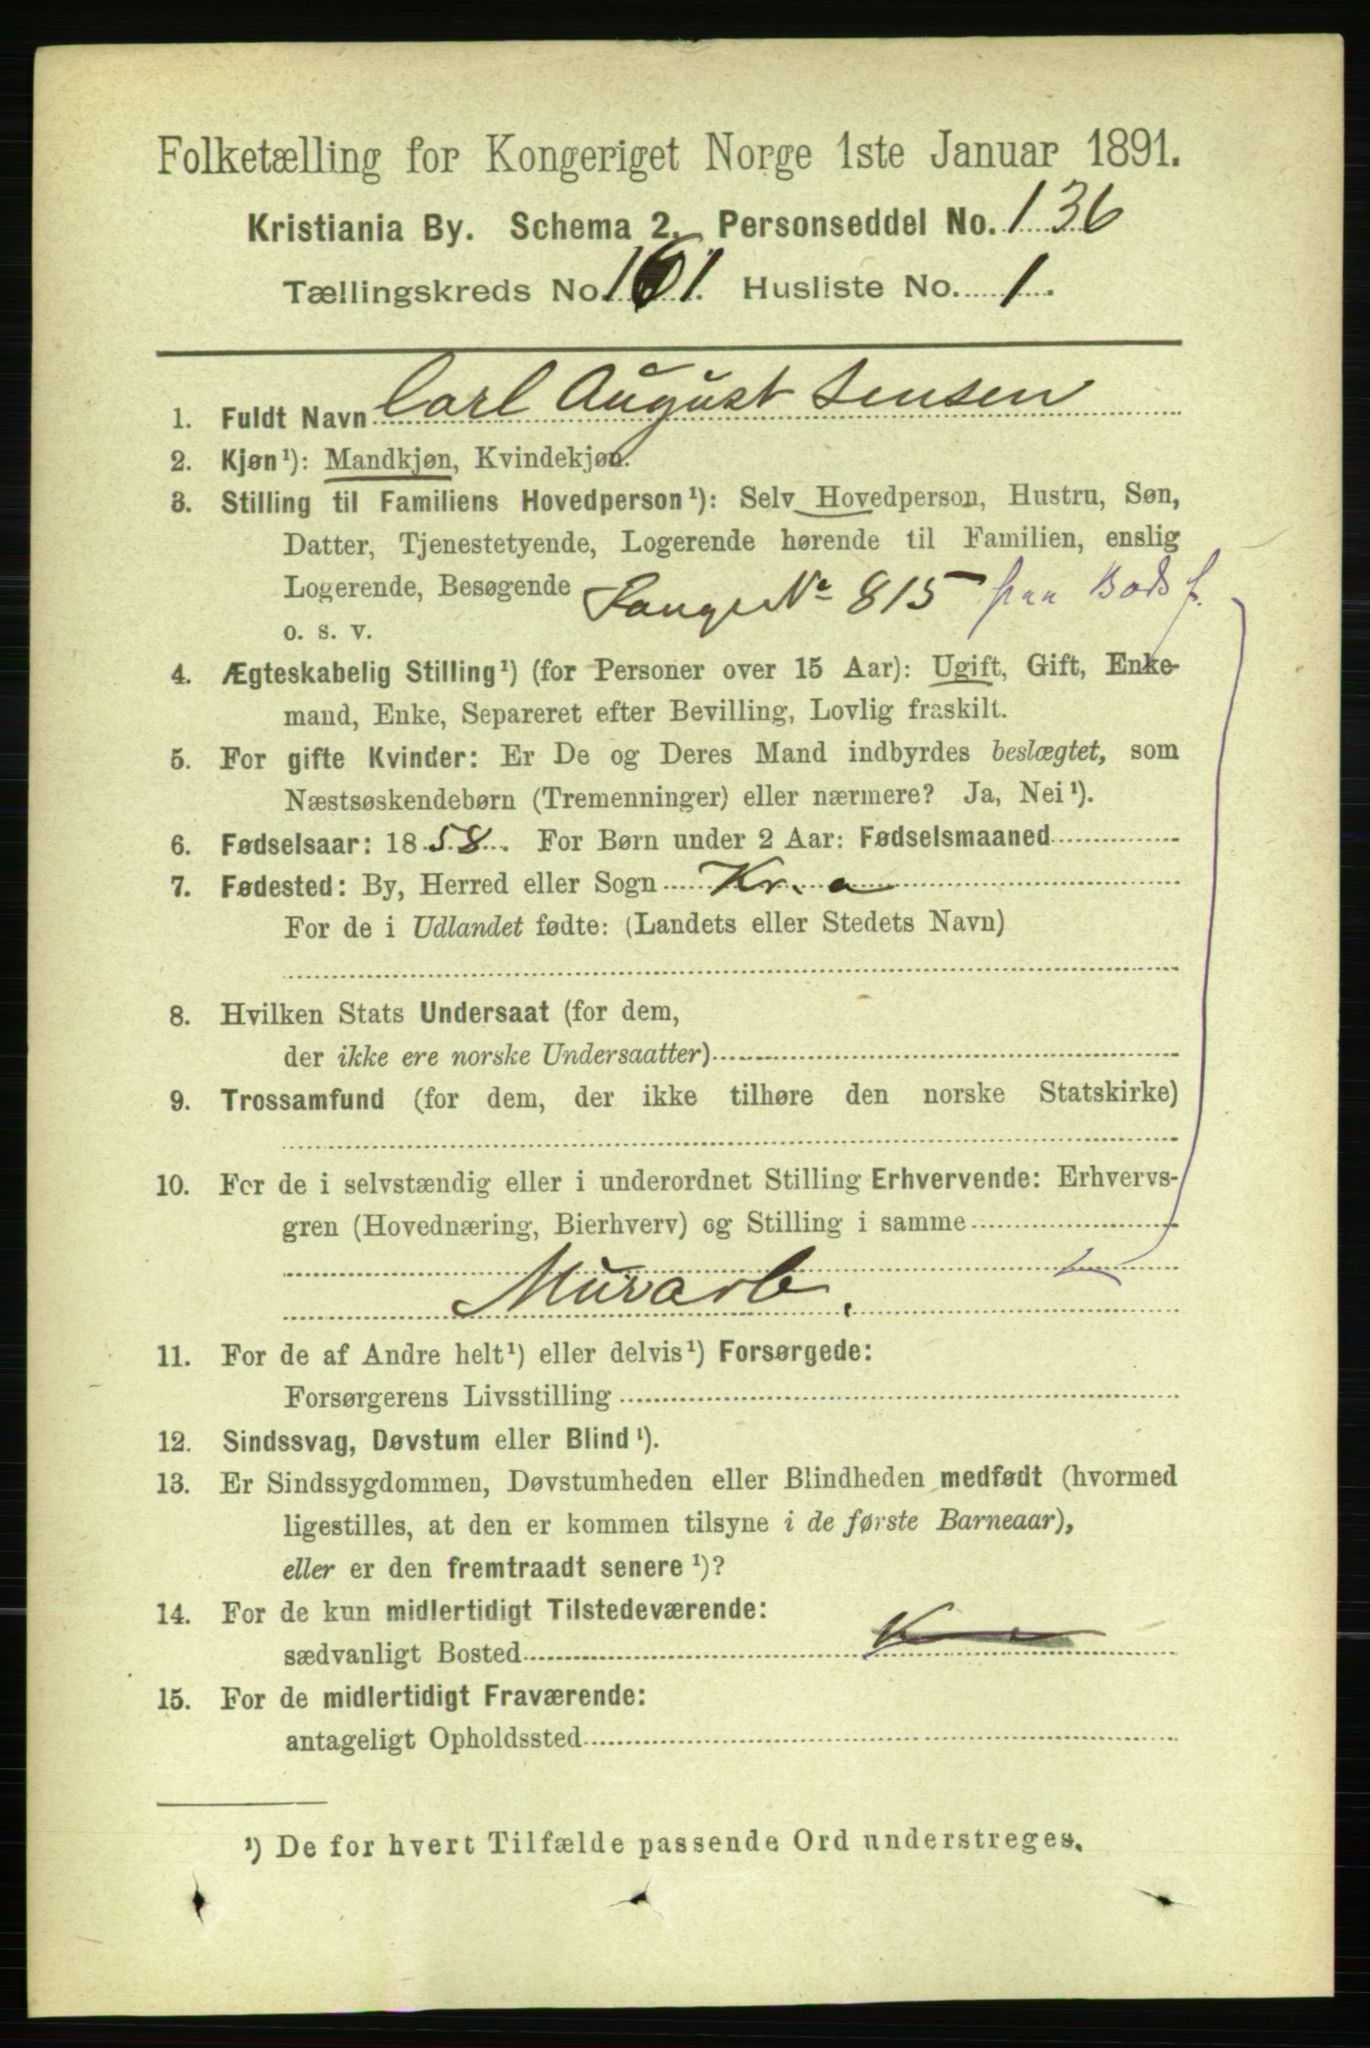 Folketælling for Kongeriget Norge 1ste Januar 1891.
Kristiania By. Schema 2. Personseddel No. 136
Tællingskreds No. 161. Husliste No. 1.
1. Fuldt Navn Carl August Jensen
2. Kjøn¹): Mandkjøn, Kvindekjøn.
3. Stilling til Familiens Hovedperson¹): Selv Hovedperson, Hustru, Søn,
Datter, Tjenestetyende, Logerende hørende til Familien, enslig
Logerende, Besøgende Fange No 815 paa Bods f.
o. s. v.
4. Ægteskabelig Stilling¹) (for Personer over 15 Aar): Ugift, Gift, Enke-
mand, Enke, Separeret efter Bevilling, Lovlig fraskilt.
5. For gifte Kvinder: Er De og Deres Mand indbyrdes beslægtet, som
Næstsøskendebørn (Tremenninger) eller nærmere? Ja, Nei¹).
6. Fødselsaar: 1858. For Børn under 2 Aar: Fødselsmaaned
7. Fødested: By, Herred eller Sogn Kr.a
For de i Udlandet fødte: (Landets eller Stedets Navn)
8. Hvilken Stats Undersaat (for dem,
der ikke ere norske Undersaatter)
9. Trossamfund (for dem, der ikke tilhøre den norske Statskirke)
10. For de i selvstændig eller i underordnet Stilling Erhvervende: Erhvervs-
gren (Hovednæring, Bierhverv) og Stilling i samme
Murarb.
11. For de af Andre helt¹) eller delvis¹) Forsørgede:
Forsørgerens Livsstilling
12. Sindssvag, Døvstum eller Blind¹).
13. Er Sindssygdommen, Døvstumheden eller Blindheden medfødt (hvormed
ligestilles, at den er kommen tilsyne i de første Barneaar),
eller er den fremtraadt senere¹)?
14. For de kun midlertidigt Tilstedeværende:
sædvanligt Bosted
15. For de midlertidigt Fraværende:
antageligt Opholdssted
¹) De for hvert Tilfælde passende Ord understreges.